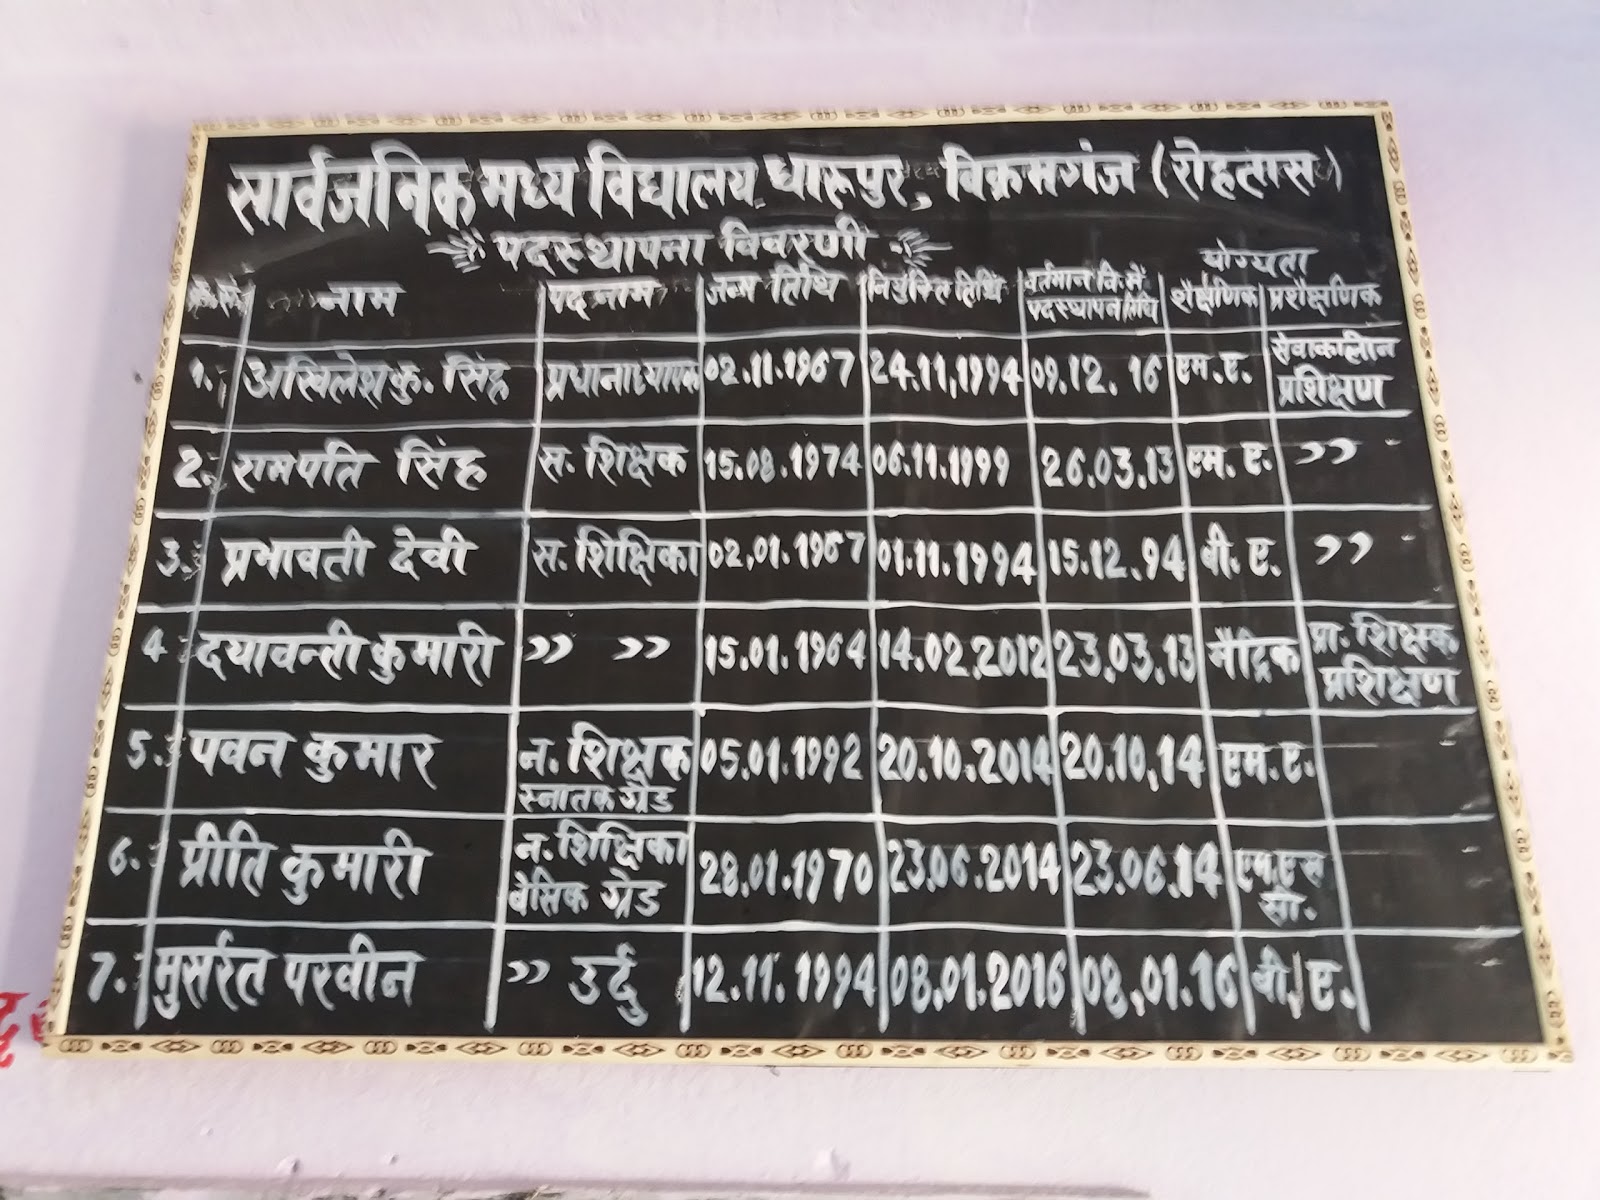 सार्वजनिक मध्य विद्यालय धारूपुर, विक्रमगंज (रोहतास)
पदस्थापना विवरणी
योग्यता
क्र.सं. नाम पदनाम जन्म तिथि नियुक्ति तिथि वर्तमान वि. में पदस्थापन तिथि शैक्षणिक प्रशैक्षणिक
1. अखिलेश कु. सिंह प्रधानाध्यापक 02.11.1967 24.11.1994 09.12.16 एम.ए. सेवाकालीन प्रशिक्षण
2. रामपति सिंह स. शिक्षक 15.08.1974 06.11.1999 26.03.13 एम.ए. ,,
3. प्रभावती देवी स. शिक्षिका 02.01.1967 01.11.1994 15.12.94 बी.ए. ,,
4 दयावन्ती कुमारी ,, ,, 15.01.1964 14.02.2012 23.03.13 मैट्रिक प्रा. शिक्षक प्रशिक्षण
5. पवन कुमार न. शिक्षक स्नातक ग्रेड 05.01.1992 20.10.2014 20.10.14 एम.ए.
6. प्रीति कुमारी न. शिक्षिका बेसिक ग्रेड 28.01.1970 23.06.2014 23.06.14 एम.एस सी.
7. मुसर्रत परवीन ,, उर्दु 12.11.1994 08.01.2016 08.01.16 बी.ए.